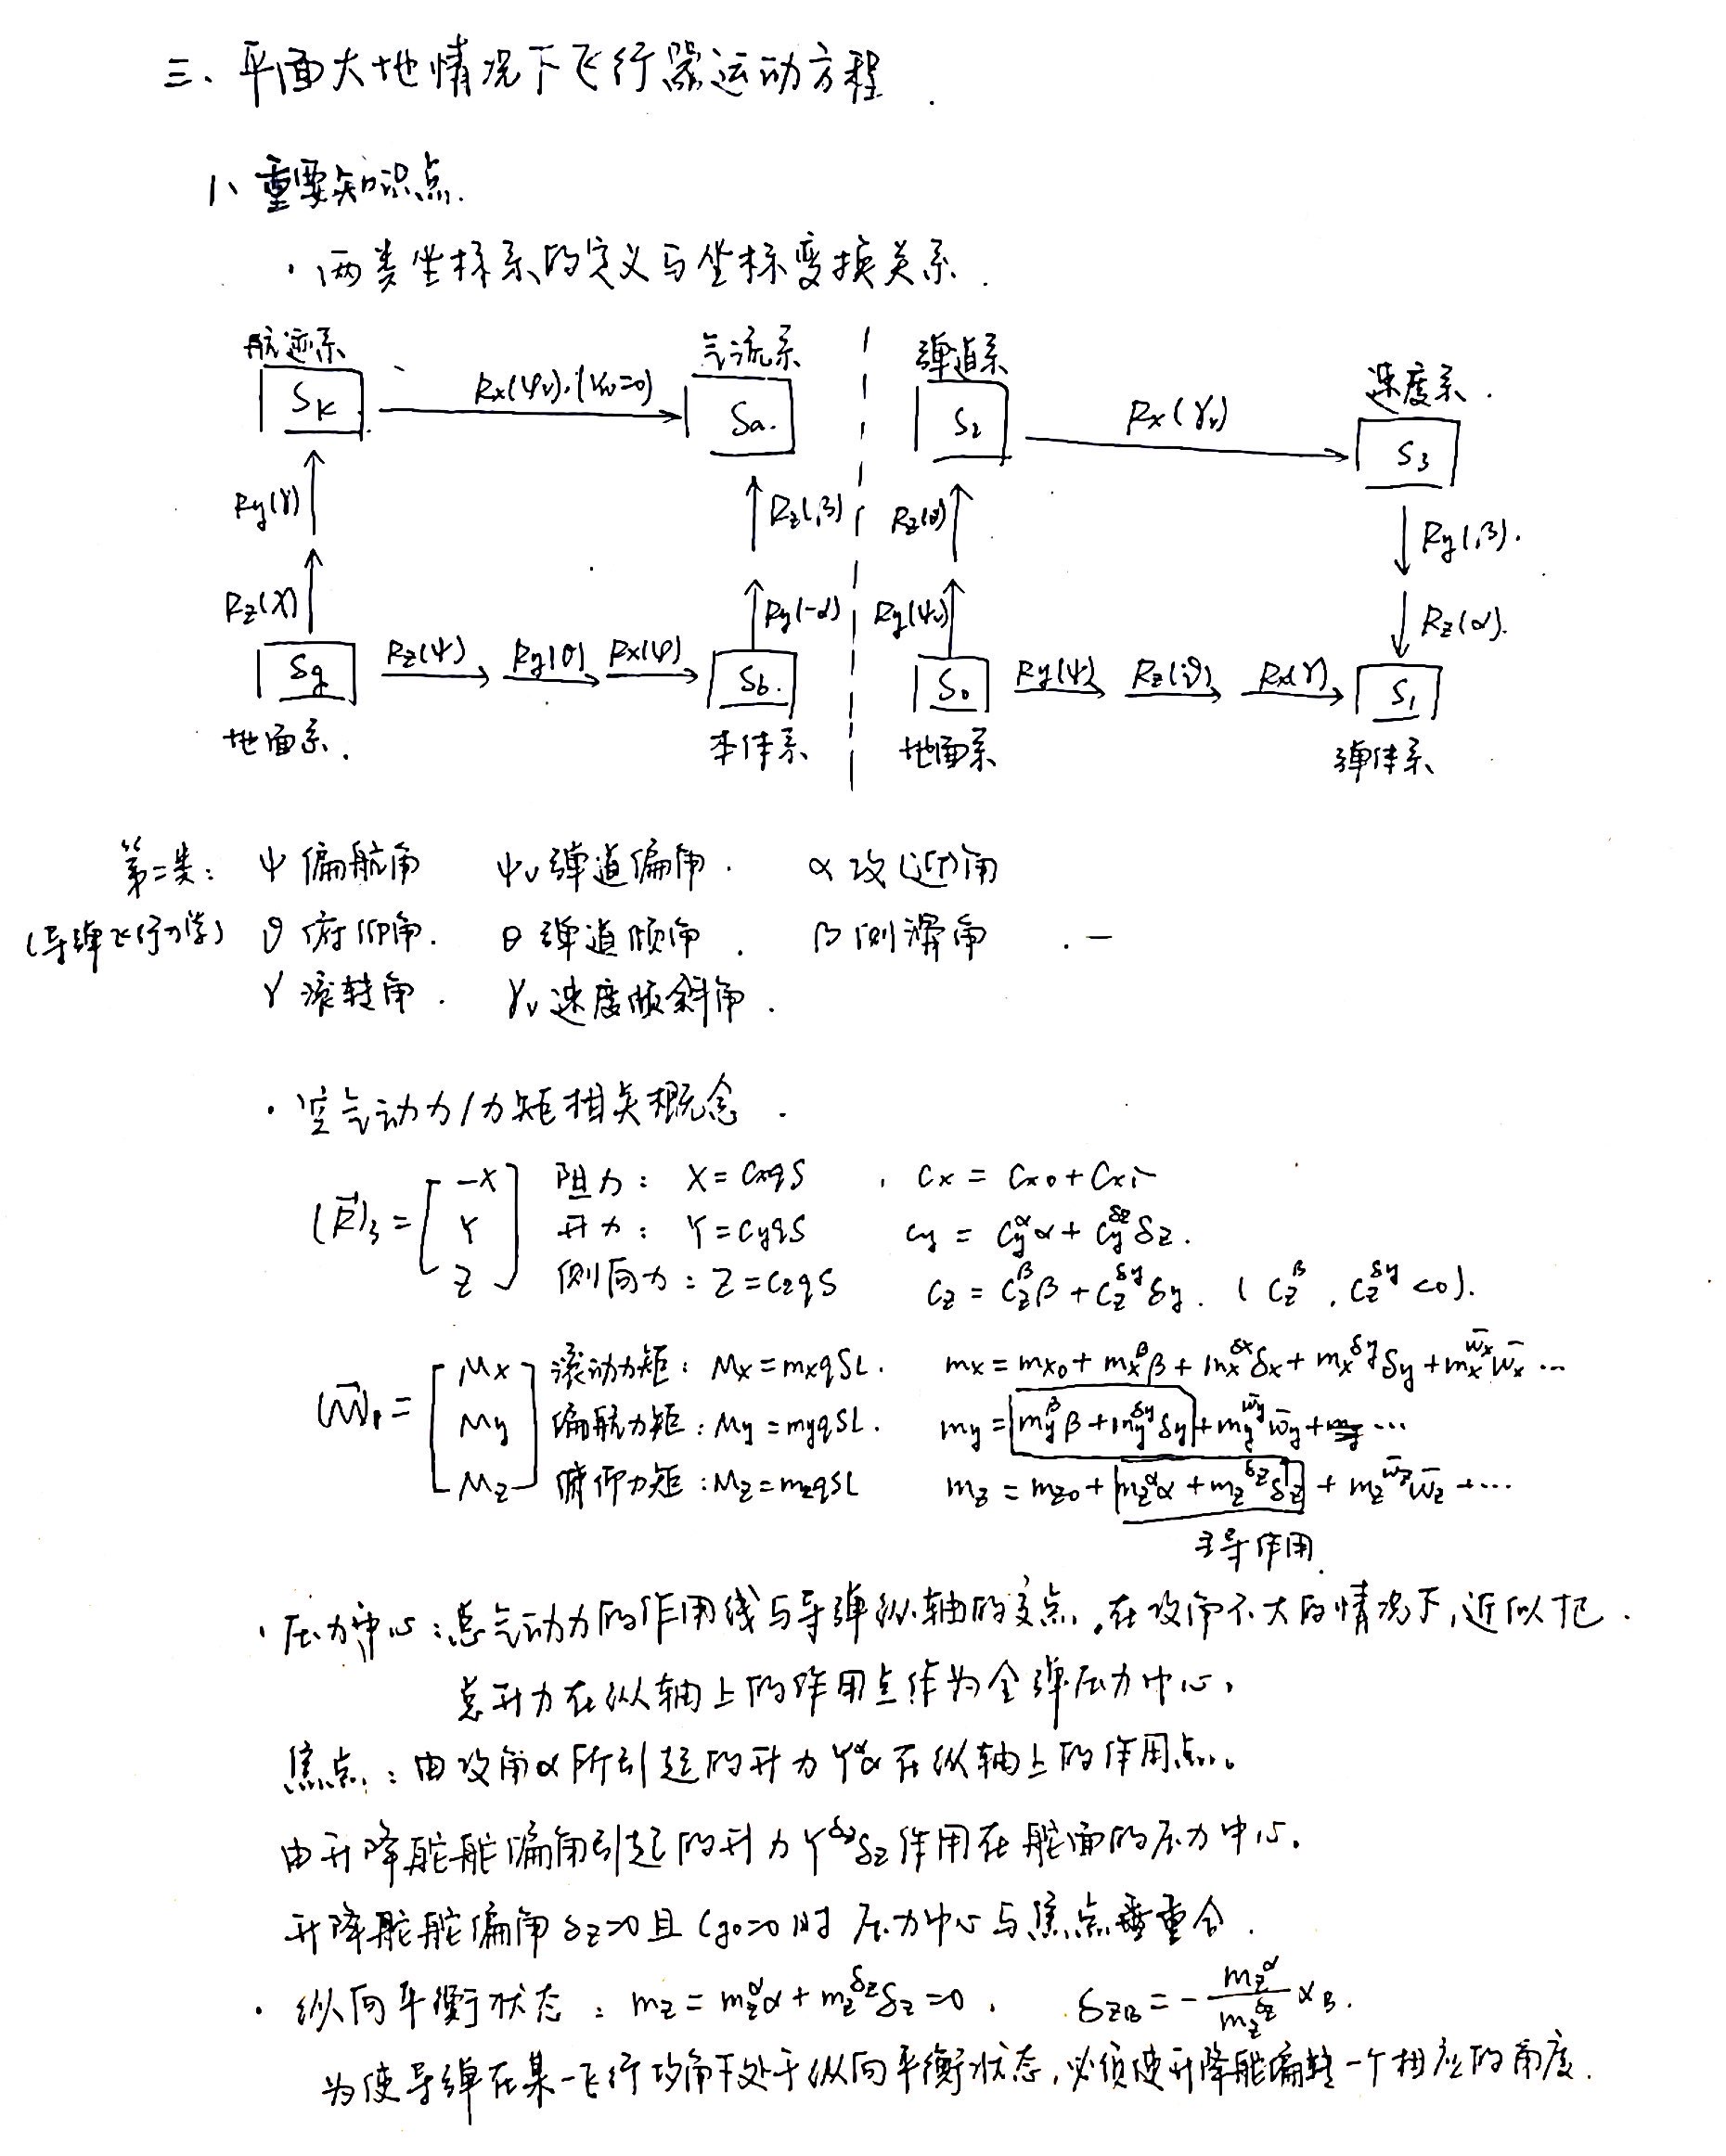 三、平面大地情况下飞行器运动方程.
1、重要知识点.
· 两类坐标系的定义与坐标变换关系.
航迹系 气流系 弹道系 速度系.
SK Rx(ψv).(γw=0) Sa. S2 Rx(γv) S3
Ry(γ) Rz(β) Rz(θ) Ry(β).
Rz(χ) Ry(-α) Ry(ψv) Rz(α).
Sg Rz(ψ) Ry(θ) Rx(φ) Sb. S0 Ry(ψ) Rz(ϑ) Rx(γ) S1
地面系. 本体系 地面系 弹体系
第二类: ψ 偏航角 ψv 弹道偏角. α 攻(迎)角
(导弹飞行力学) ϑ 俯仰角. θ 弹道倾角. β 侧滑角
γ 滚转角. γv 速度倾斜角.
· 空气动力/力矩相关概念.
(R)3 = [-X Y Z] 阻力: X=CxqS , Cx = Cx0+Cxi
升力: Y=CyqS Cy = Cy^α α + Cy^δz δz.
侧向力: Z=CzqS Cz = Cz^β β + Cz^δy δy. ( Cz^β , Cz^δy <0).
(M)1 = [Mx My Mz] 滚动力矩: Mx=mxqSL. mx = mx0 + mx^β β + mx^δx δx + mx^δy δy + mx^ω̄x ω̄x ...
偏航力矩: My=myqSL. my = my^β β + my^δy δy + my^ω̄y ω̄y + ...
俯仰力矩: Mz=mzqSL mz = mz0 + mz^α α + mz^δz δz + mz^ω̄z ω̄z +...
主导作用.
· 压力中心: 总气动力的作用线与导弹纵轴的交点. 在攻角不大的情况下, 近似把
总升力在纵轴上的作用点作为全弹压力中心,
焦点: 由攻角α所引起的升力Y^α α在纵轴上的作用点。
由升降舵舵偏角引起的升力Y^δz δz作用在舵面的压力中心.
升降舵舵偏角δz=0且Cy0=0时 压力中心与焦点重合.
· 纵向平衡状态: mz = mz^α α + mz^δz δz =0 , δzB = - mz^α / mz^δz αB.
为使导弹在某一飞行攻角下处于纵向平衡状态, 必须使升降舵偏转一个相应的角度.